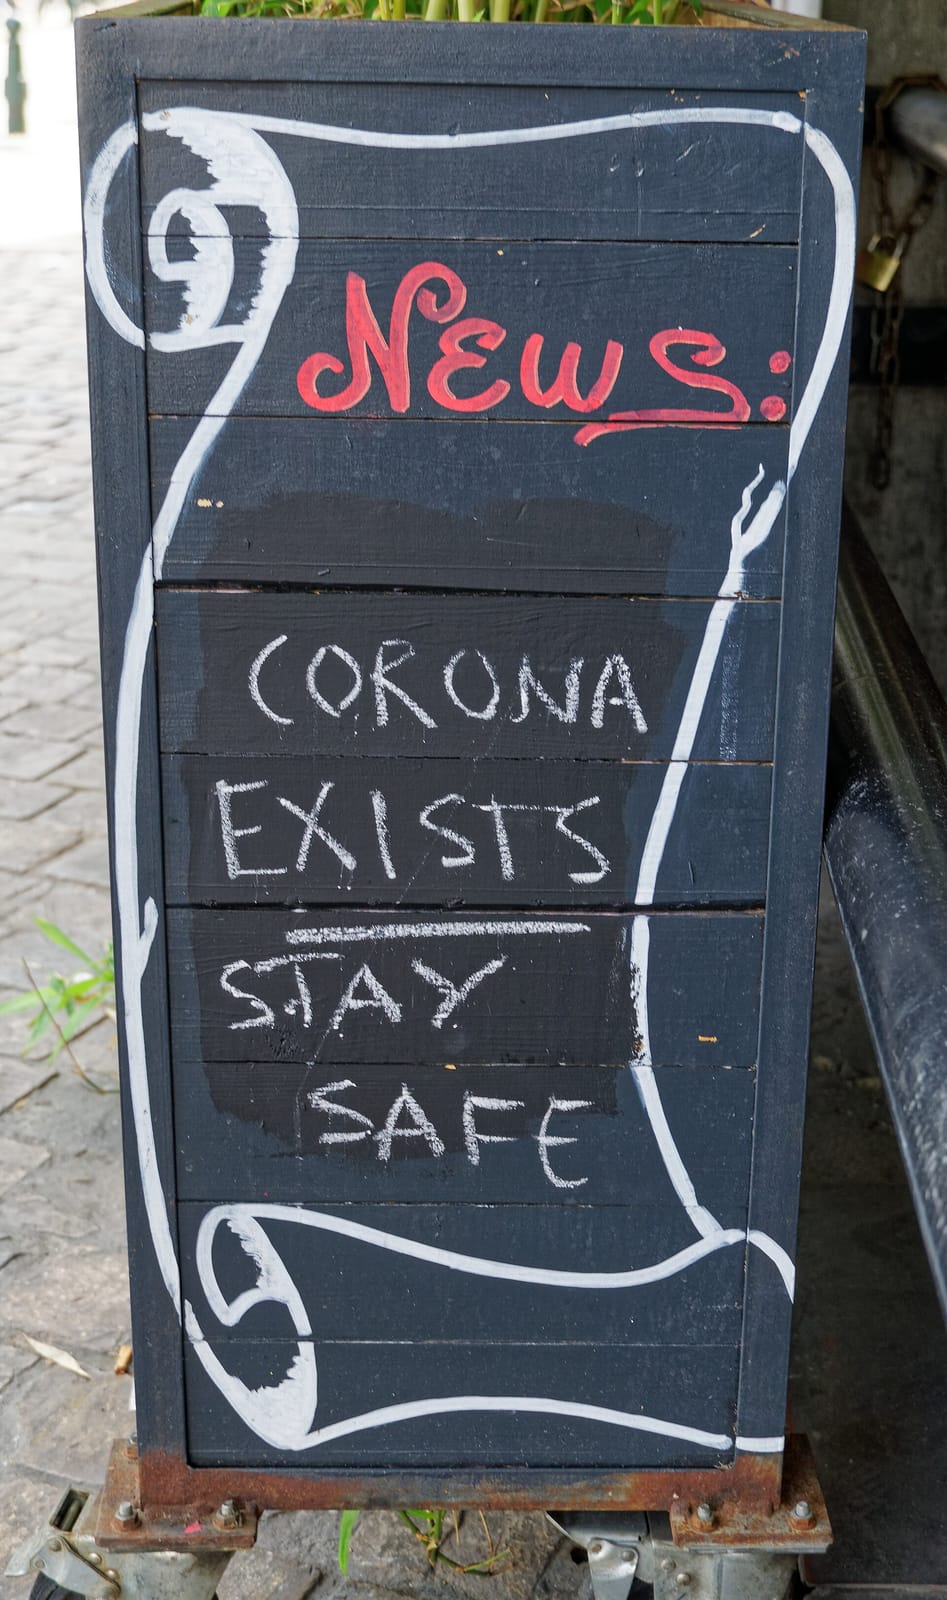 News:
CORONA
EXISTS
STAY
SAFE